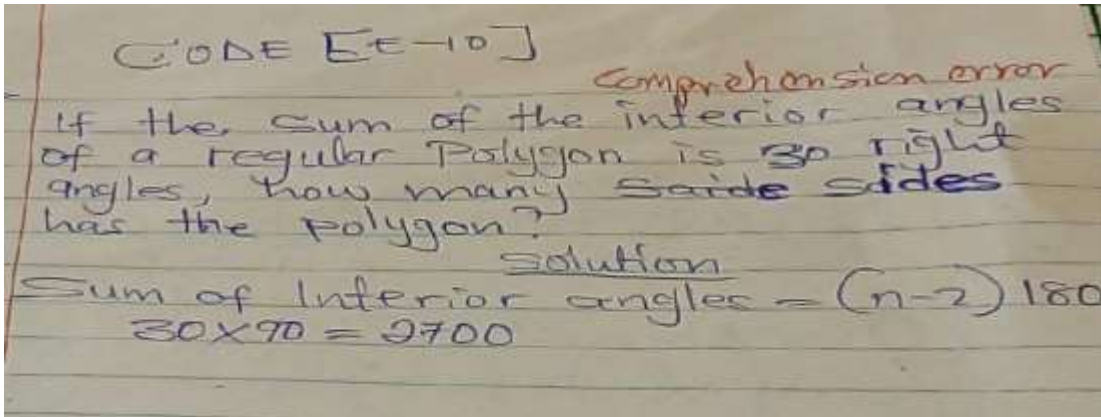 CODE [EE-10]
Comprehension error
If the sum of the interior angles
of a regular Polygon is 30 right
angles, how many saide sides
has the polygon?
Solution
Sum of Interior angles = (n-2) 180
30×90 = 2700